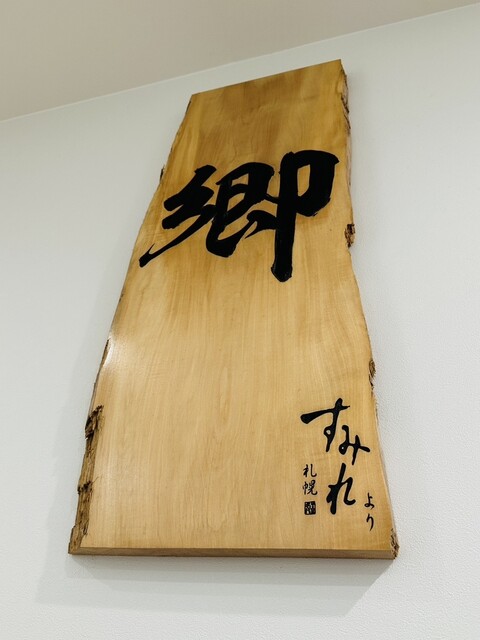 郷
すみれ
より
札幌